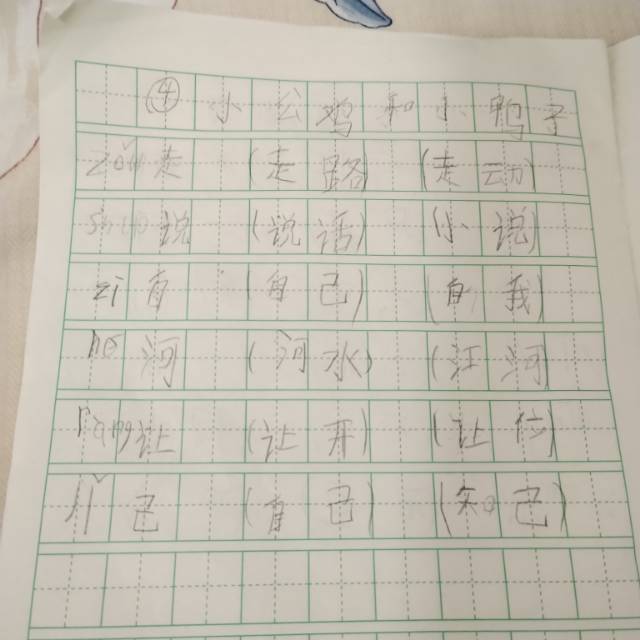 ④小公鸡和小鸭子
zǒu走 (走路) (走动)
shuō说 (说话) (小说)
zì自 (自己) (自我)
hé河 (河水) (江河)
ràng让 (让开) (让位)
jǐ己 (自己) (知己)